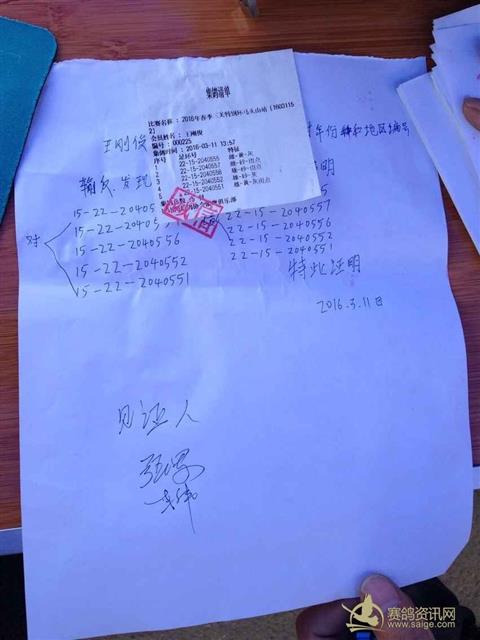 集鸽清单
比赛名称：2016年春季三关特别环·马头山站（1603115
2）
会员姓名：王刚俊
编号：000225
集鸽时间：2016-03-11 13:57
序号 足环号 特征
1 22-15-2040555 雄-黄-灰
2 22-15-2040557 雄-砂-雨点
3 22-15-2040556
4 22-15-2040552
5 22-15-2040551
王刚俊
年份和地区编号
输入发现
明
对
15-22-20405
15-22-20405
15-22-2040556
15-22-2040552
15-22-2040551
22-15-2040557
22-15-2040556
22-15-2040552
22-15-2040551
诚信
俱乐部
特此证明
2016.3.11日
见证人
赛鸽资讯网
www.saige.com